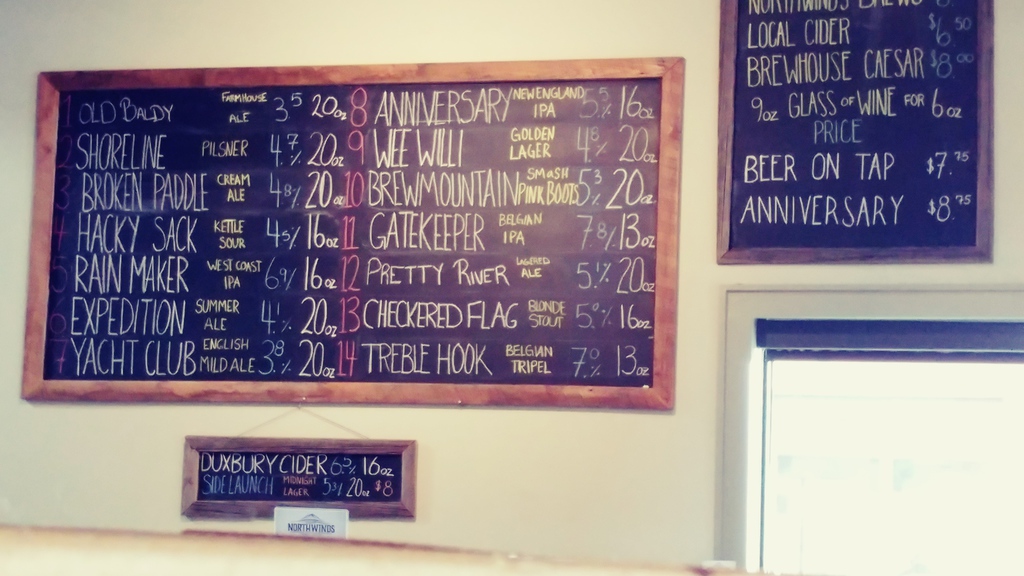 1 OLD BALDY FARMHOUSE ALE 3.5 20oz
2 SHORELINE PILSNER 4.7% 20oz
3 BROKEN PADDLE CREAM ALE 4.8% 20oz
4 HACKY SACK KETTLE SOUR 4.5% 16oz
5 RAIN MAKER WEST COAST IPA 6.9% 16oz
6 EXPEDITION SUMMER ALE 4.1% 20oz
7 YACHT CLUB ENGLISH MILD ALE 3.8% 20oz
8 ANNIVERSARY NEW ENGLAND IPA 5.5% 16oz
9 WEE WILLI GOLDEN LAGER 4.8% 20oz
10 BREWMOUNTAIN SMaSH PINK BOOTS 5.3% 20oz
11 GATEKEEPER BELGIAN IPA 7.8% 13oz
12 PRETTY RIVER LAGERED ALE 5.1% 20oz
13 CHECKERED FLAG BLONDE STOUT 5.0% 16oz
14 TREBLE HOOK BELGIAN TRIPEL 7.0% 13oz
NORTHWINDS BREWS
LOCAL CIDER $6.50
BREWHOUSE CAESAR $8.00
9oz GLASS OF WINE FOR 6oz
PRICE
BEER ON TAP $7.75
ANNIVERSARY $8.75
DUXBURY CIDER 6.5% 16oz
SIDE LAUNCH MIDNIGHT LAGER 5.3% 20oz $8
NORTHWINDS